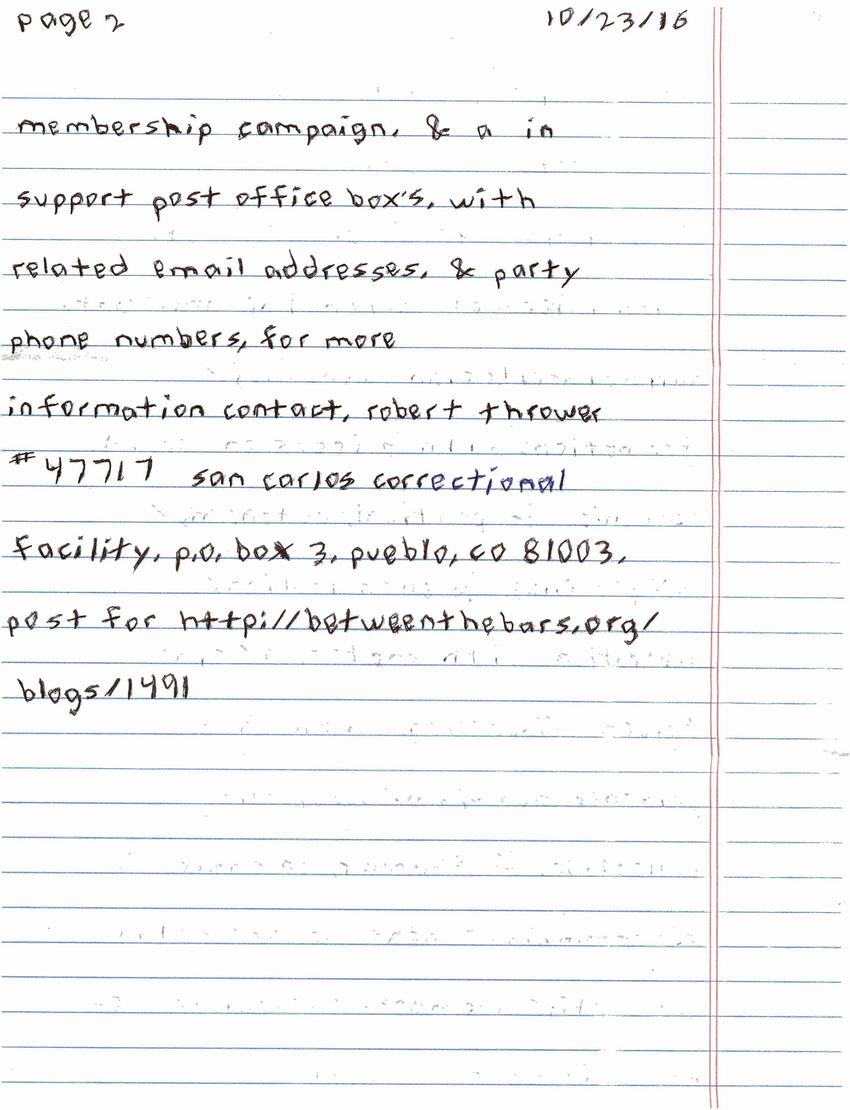 page 2 10/23/16
membership campaign, & a in
support post office box's, with
related email addresses, & party
phone numbers, for more
information contact, robert thrower
#47717 san carlos correctional
facility, p.o. box 3, pueblo, co 81003,
post for http://betweenthebars.org/
blogs/1491